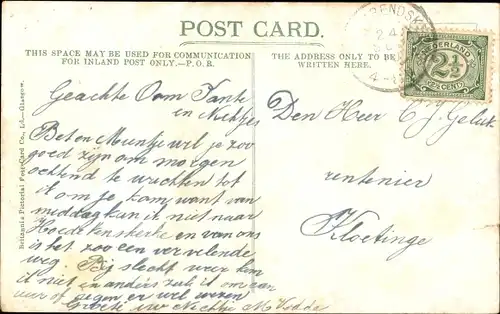 POST CARD.
THIS SPACE MAY BE USED FOR COMMUNICATION
FOR INLAND POST ONLY.—P.O.R.
THE ADDRESS ONLY TO BE
WRITTEN HERE.
NEDERLAND
2½
2½ CENT
24
4-
Britannia Pictorial Post Card Co., Ld.—Glasgow.
Geachte Oom Tante
en Nichtjes
Bet en Muntje wil je zoo
goed zijn om morgen
ochtend te wachten tot
ik om je kom want van
middag kan ik niet naar
Hoedekenskerke en van ons
is het zoo een vervelende
weg. Bij slecht weer kom
ik niet en anders zal ik om een
uur of negen er wel wezen
Groete uw Nichtje M
Den Heer C J. Geluk
rentenier
Kloetinge